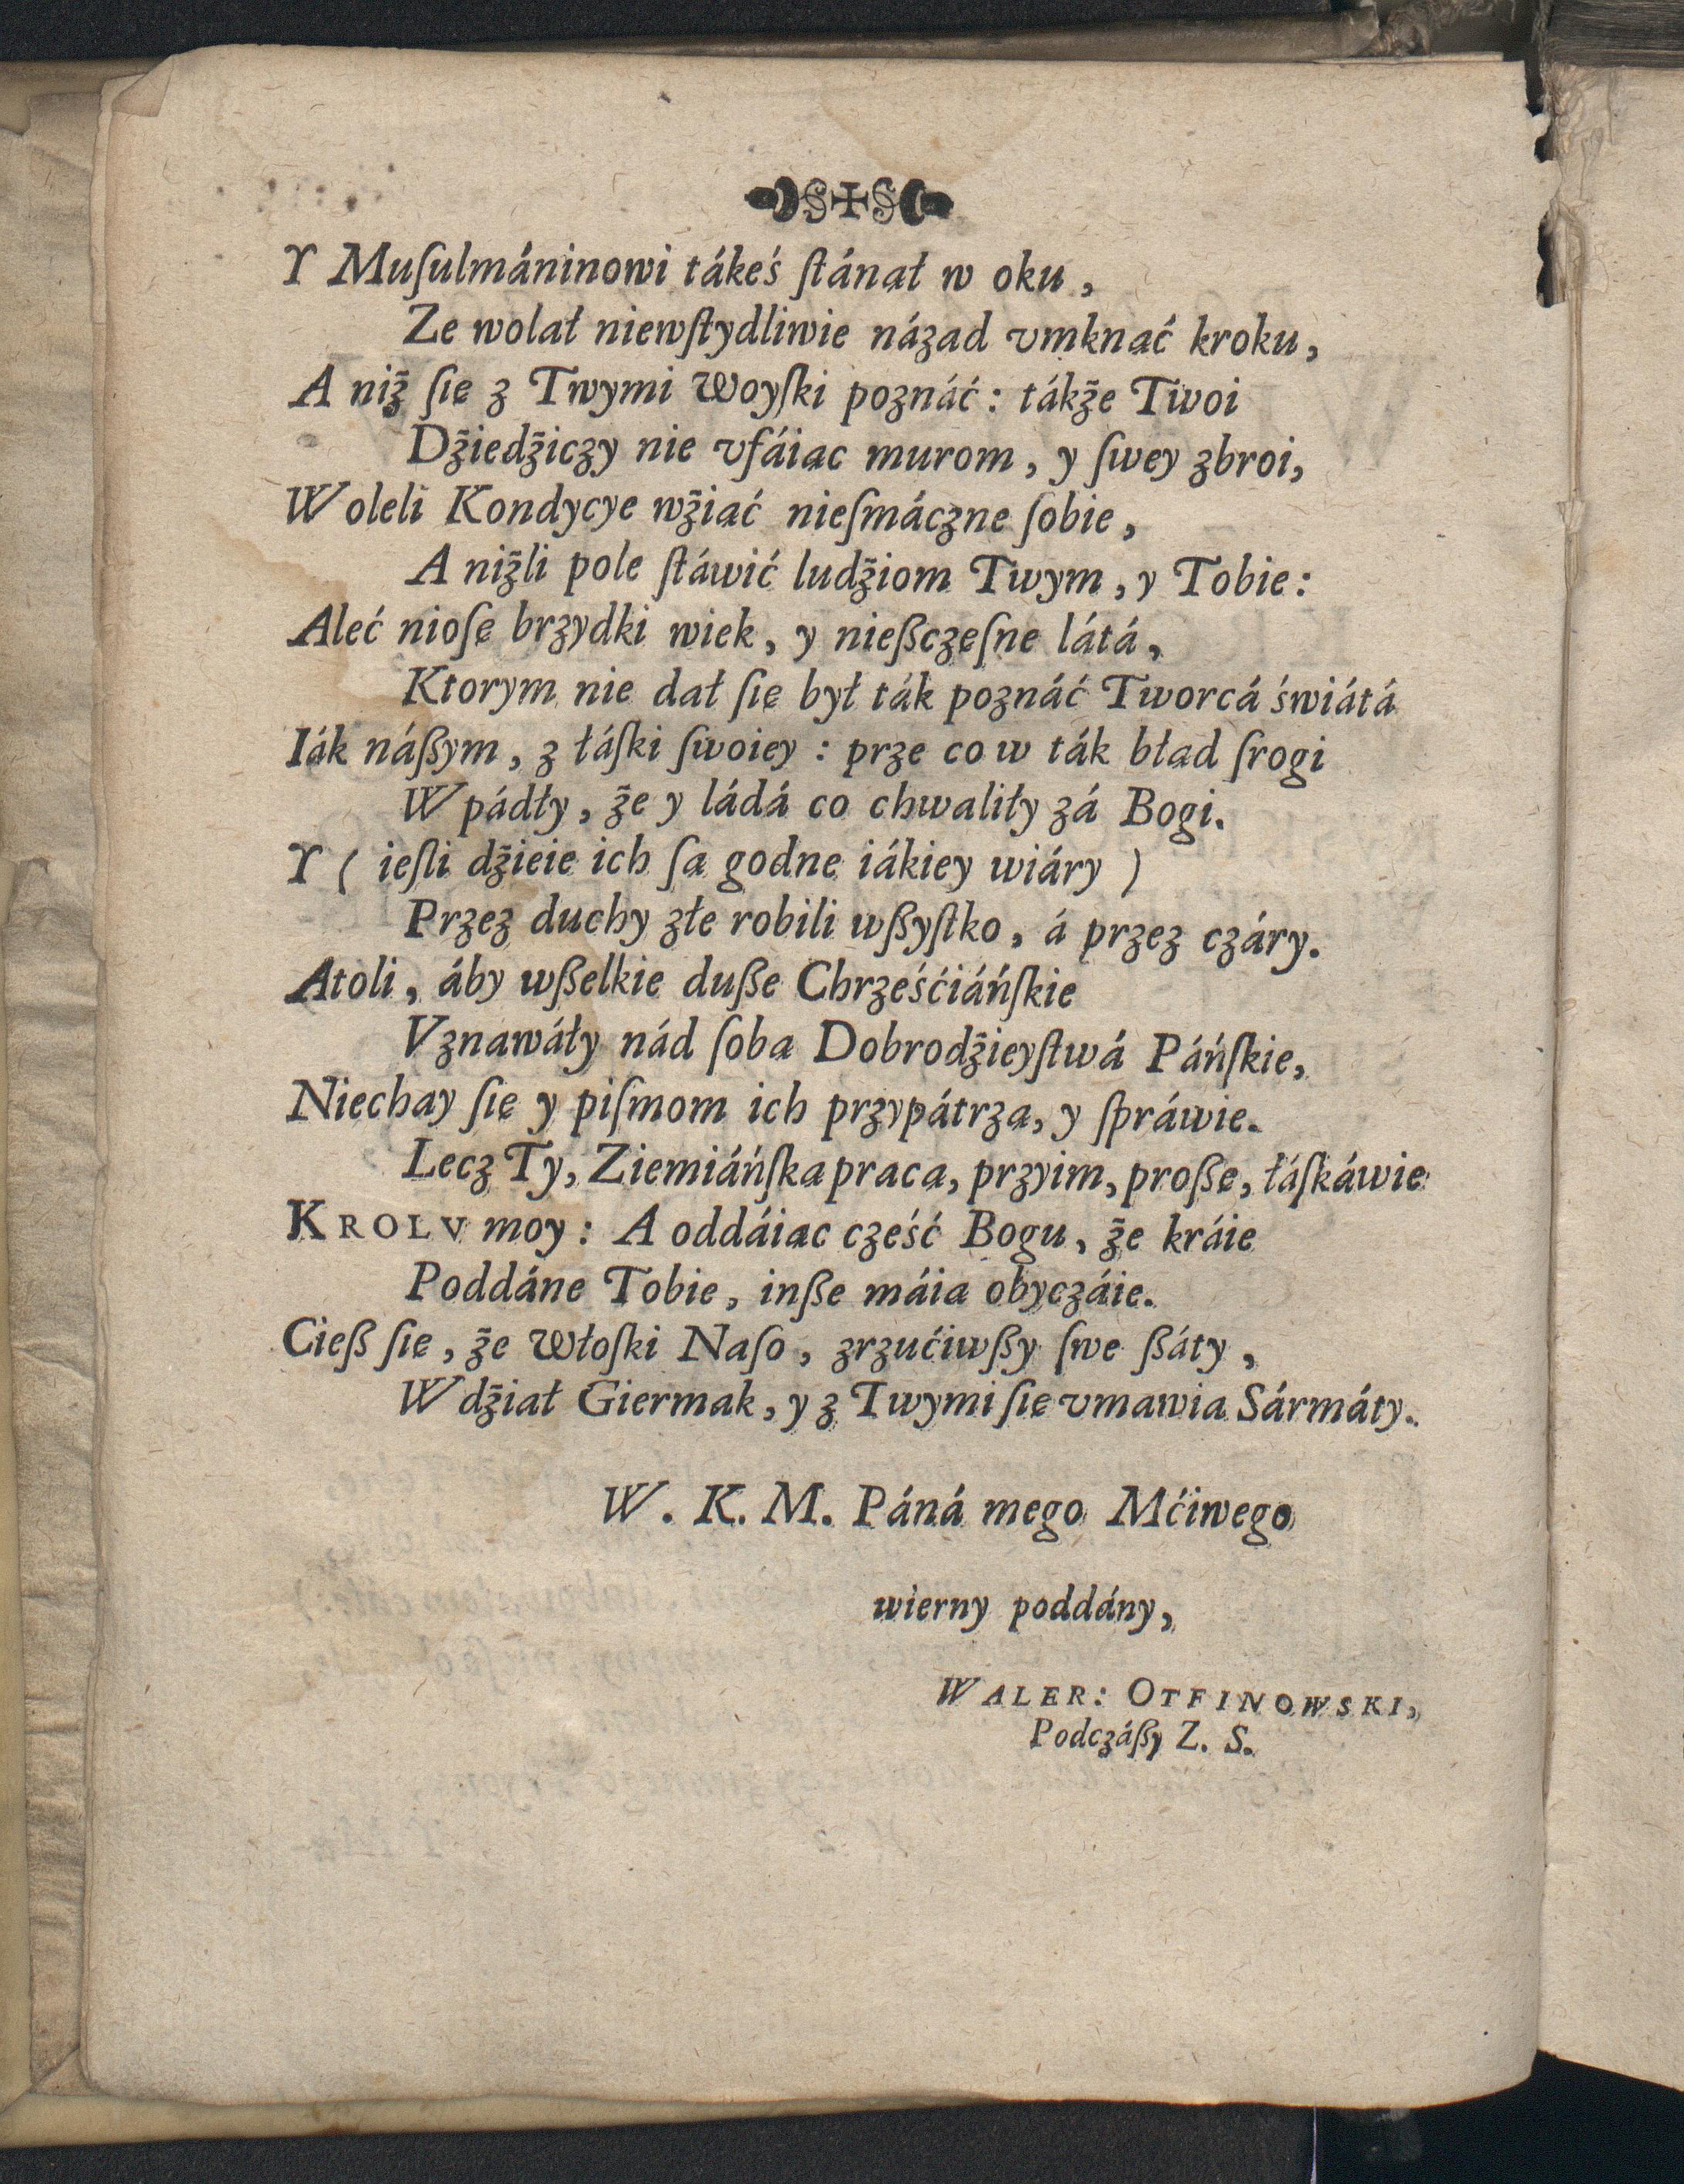 Y Muſulmáninowi tákeś ſtánął w oku,
Ze wolał niewſtydliwie názad vmknąć kroku,
A niż ſię z Twymi Woyſki poznáć: tákże Twoi
Dżiedżiczy nie vfáiąc murom, y ſwey zbroi,
Woleli Kondycye wżiąć nieſmáczne ſobie,
A niżli pole ſtáwić ludżiom Twym, y Tobie:
Aleć nioſę brzydki wiek, y nießczęſne látá,
Ktorym nie dał ſię był ták poznáć Tworcá świátá
Iák náßym, z łáſki ſwoiey: prze co w ták błąd ſrogi
Wpádły, że y ládá co chwaliły zá Bogi.
Y (ieſli dżieie ich ſą godne iákiey wiáry)
Przez duchy złe robili wßyſtko, á przez czáry.
Atoli, áby wßelkie duße Chrześćiáńſkie
Vznawáły nád ſobą Dobrodżieyſtwá Páńſkie,
Niechay ſię y piſmom ich przypátrzą, y ſpráwie.
Lecz Ty, Ziemiáńſką pracą, przyim, proßę, łáſkáwie
KROLV moy: A oddáiąc cześć Bogu, że kráie
Poddáne Tobie, inße máią obyczáie.
Cieß ſię, że Włoſki Naſo, zrzućiwßy ſwe ßáty,
Wdżiał Giermak, y z Twymi ſię vmawia Sármáty.
W. K. M. Páná mego Mćiwego
wierny poddány,
WALER: OTFINOWSKI,
Podczáßy Z. S.